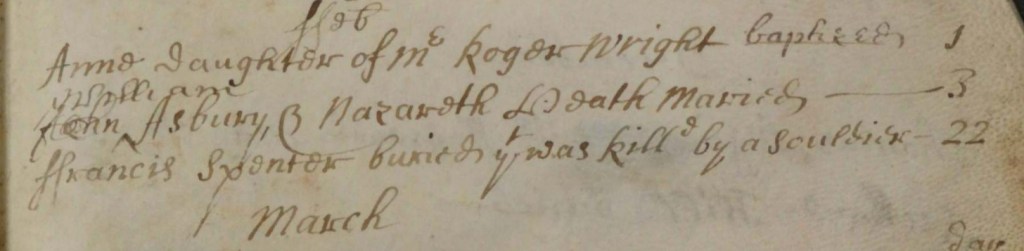 ffeb
Anne daughter of Mr Roger Wright baptized 1
William
John Asbury, & Nazareth Heath Maried 3
ffrancis Spenser buried yt was killd by a souldier - 22
March
day